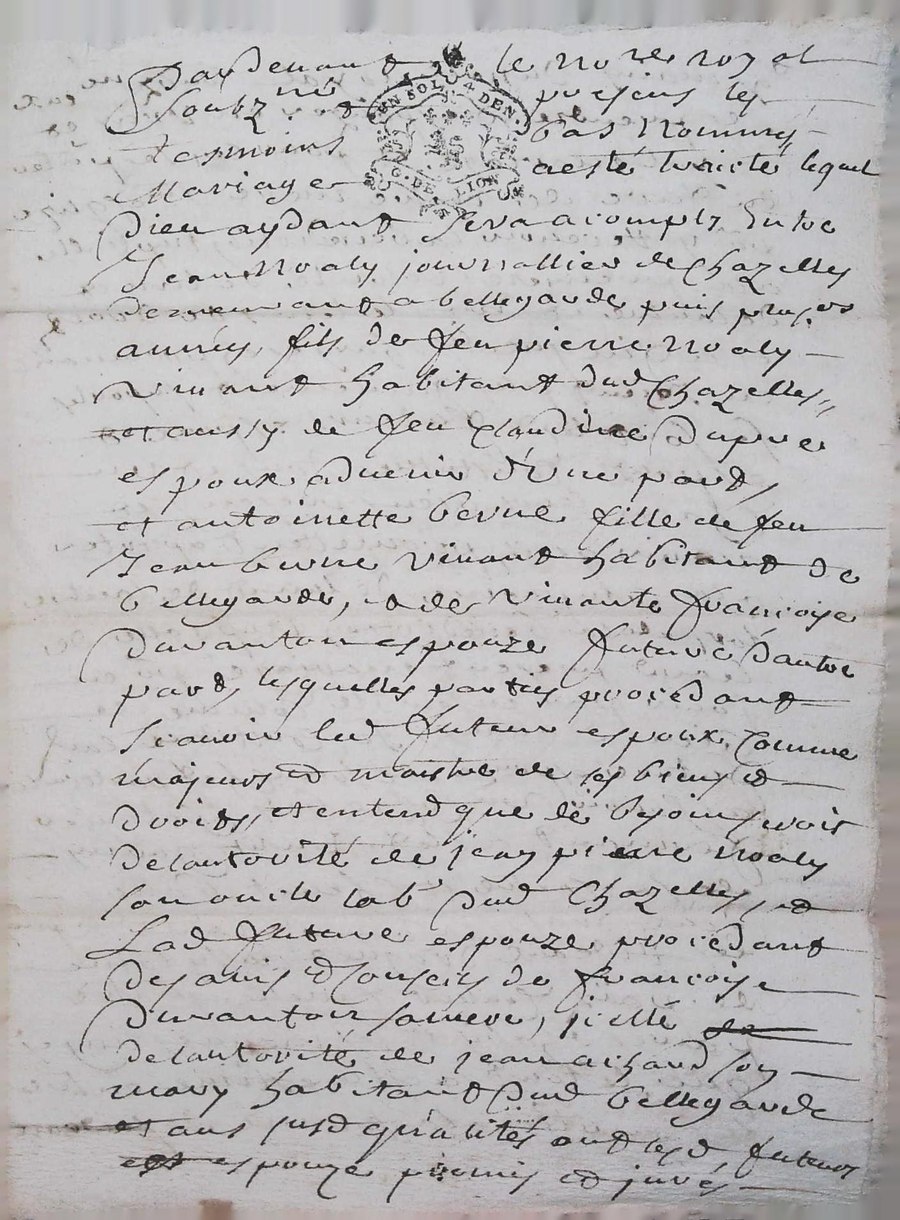 Pardevant le no.re royal
Soubz.né et presens les
tesmoins bas nommés
UN SOL 4 DEN.
G. DE LION
Mariage a esté traicté lequel
Dieu aydant sera acomply Entre
Jean Noaly journallier de Chazelles
demeurant a bellegarde puis plus.rs
années, fils de feu pierre noaly
vivant habitant dud Chazelles
et aussy de feu Claudine Dupre
espoux advenir d'Une part,
et antoinette berne fille de feu
Jean berne vivant habitant de
bellegarde, et de vivante françoise
Duvanton espouze future d'autre
part, lesquelles parties procedant
scavoir led futeur espoux comme
majeurs et maistre de ses biens et
droits, et entend que de besoin seroit
de lautorité de jean pierre noaly
son oncle lab.r dud Chazelles, et
Lad future espouze procedant
des avis et conseils de françoise
Duvanton sa mere, jcelle
de lautorité de jean achard son
mary habitant dud bellegarde
et aus susd qualités ont lesd futeurs
espouze promis et jurés